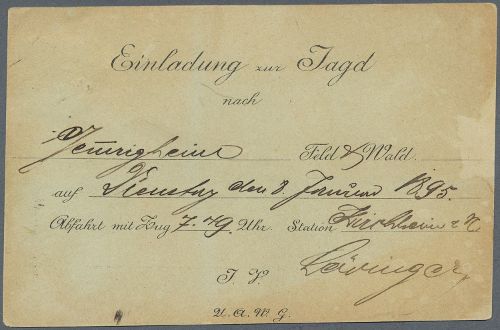 Einladung zur Jagd
nach
Feld & Wald.
auf Dienstag den 8. Januar 1895.
Abfahrt mit Zug 7.49 Uhr. Station Kirchheim a/N
I. V.
U. A. w. G.